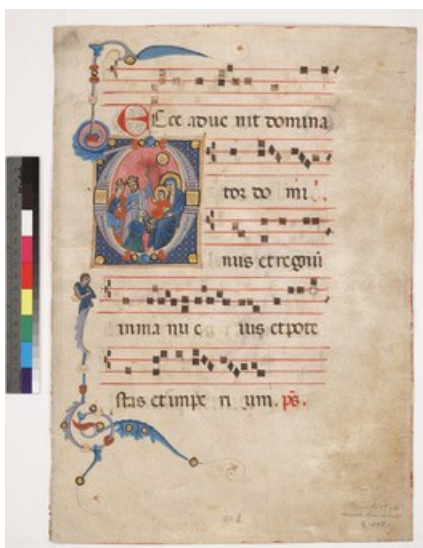 ECce adue nit domina
tor do mi
nus et regnū
in ma nu e ius et pote
stas et impe ri um. ps.